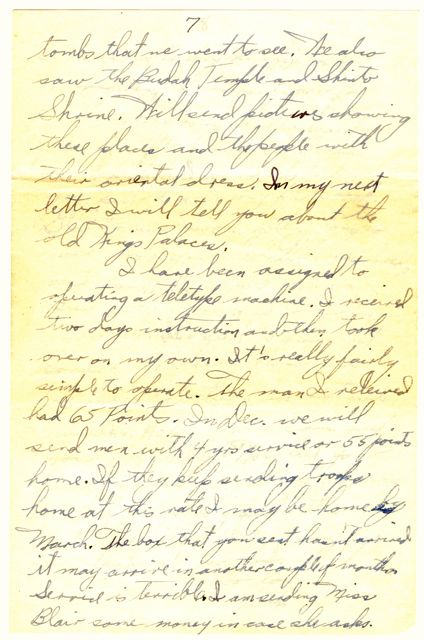 7
tombs that we went to see. We also
saw the Budah Temple and Shinto
Shrine. Will send pictures showing
these places and the people with
their oriental dress. In my next
letter I will tell you about the
old Kings Palaces.
I have been assigned to
operating a teletype machine. I received
two days instruction and then took
over on my own. It's really fairly
simple to operate. The man I relieved
had 65 Points. In Dec. we will
send men with 4 yrs service or 55 points
home. If they keep sending troops
home at this rate I may be home by
March. The box that you sent hasn't arrived
it may arrive in another couple of months.
Service is terrible. I am sending Miss
Blair some money in case she asks.